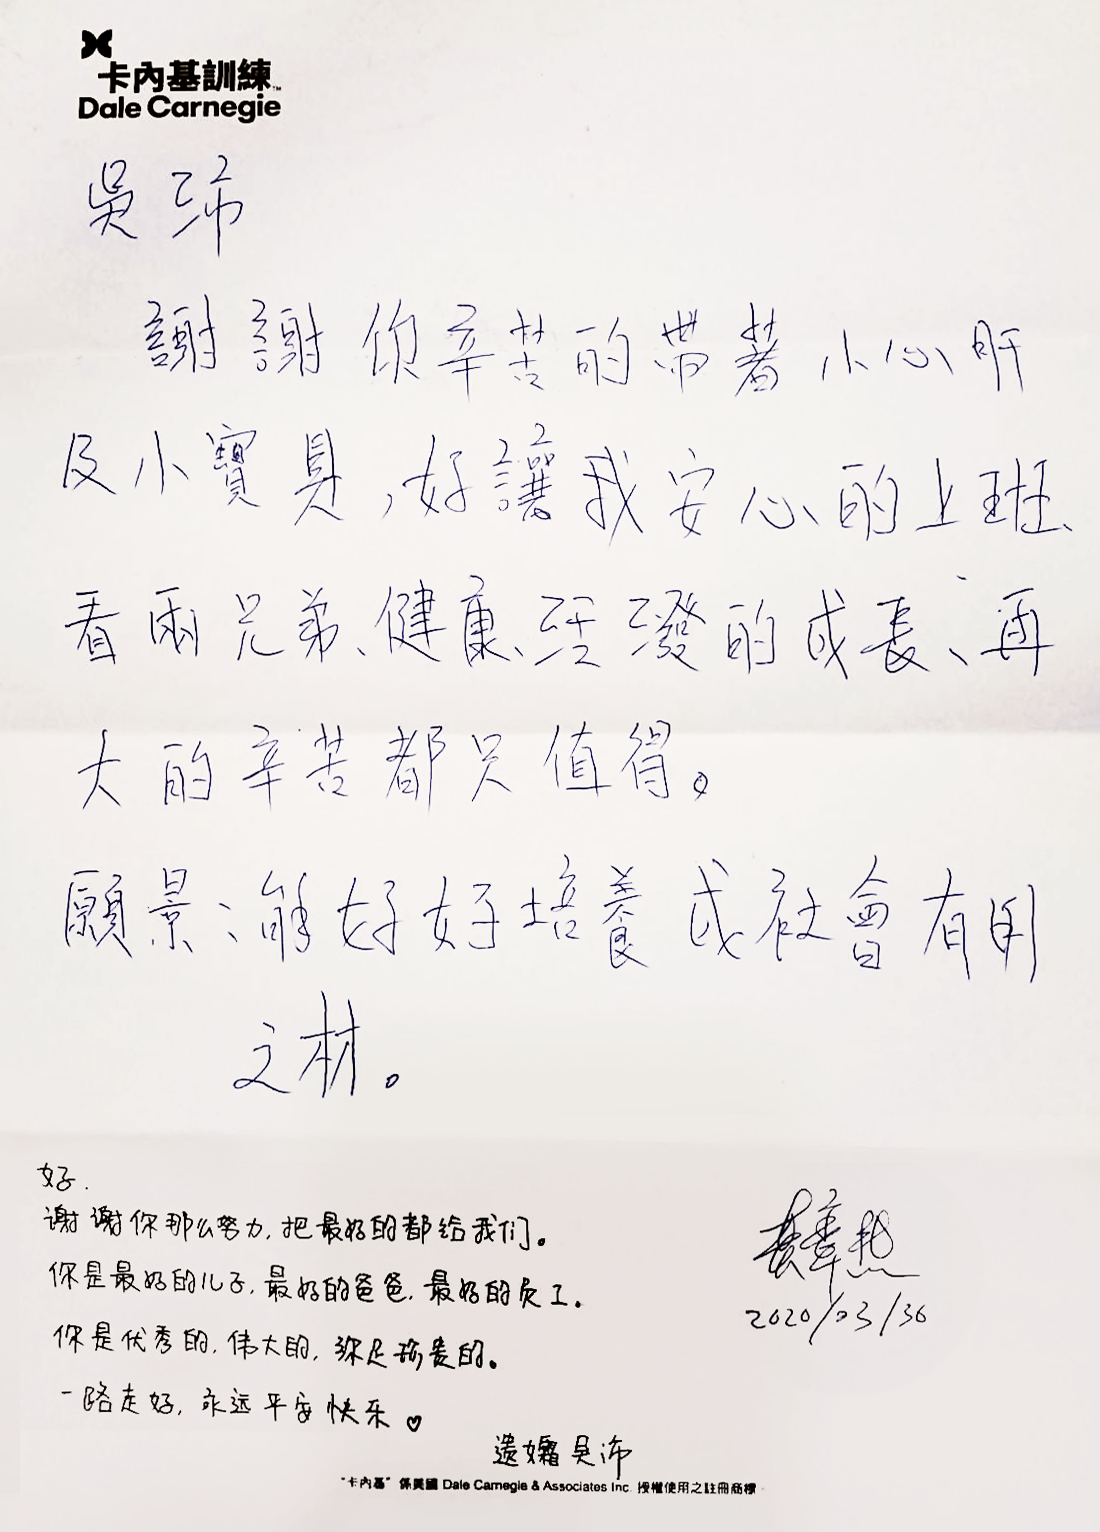 卡內基訓練™
Dale Carnegie
吳沛
謝謝你辛苦的帶著小心肝
及小寶貝,好讓我安心的上班、
看兩兄弟、健康、活潑的成長、再
大的辛苦都只值得。
願景:能好好培養成社會有用
之材。
好.
谢谢你那么努力,把最好的都给我们。
你是最好的儿子,最好的爸爸,最好的员工。
你是优秀的,伟大的,你是珍贵的。
一路走好,永远平安快乐♡
遗孀吴沛
2020/03/30
"卡內基" 係美國 Dale Carnegie & Associates Inc. 授權使用之註冊商標